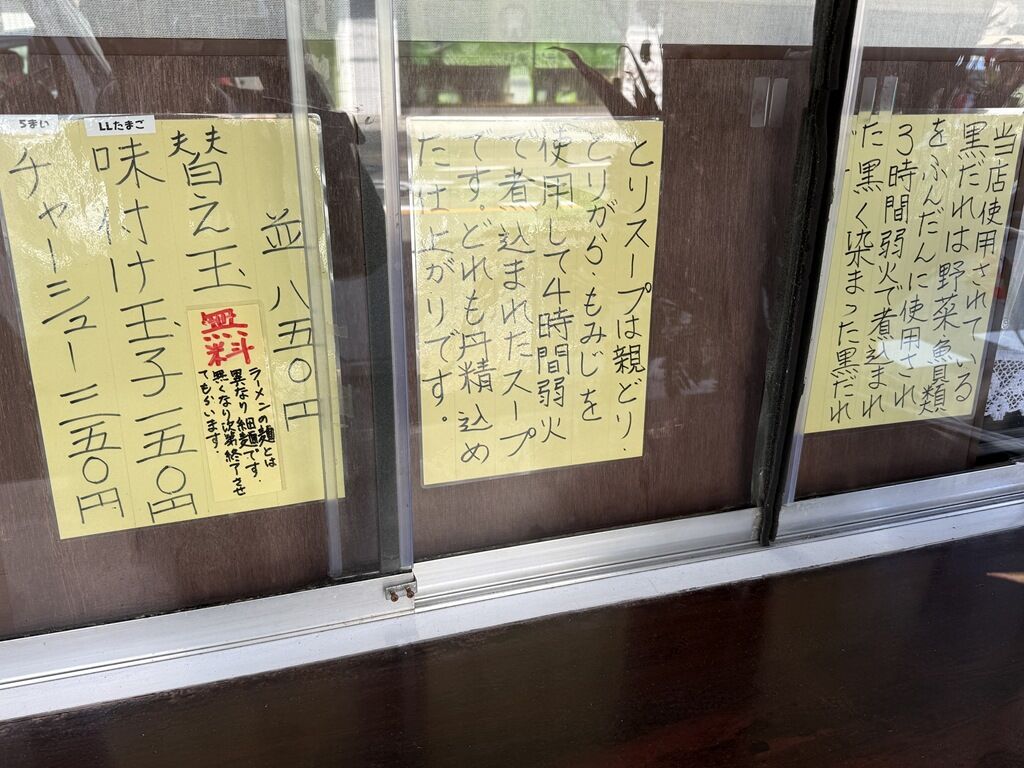 当店使用されている
黒だれは野菜、魚貝類
をふんだんに使用され
3時間弱火で煮込まれ
た黒く染まった黒だれ
とりスープは親どり、
とりがら、もみじを
使用して4時間弱火
で煮込まれたスープ
です。どれも丹精込め
た仕上がりです。
並八五〇円
替え玉
無料
ラーメンの麺とは
異なり細麺です。
無くなり次第終了させ
てもらいます。
LLたまご
味付け玉子一五〇円
5まい
チャーシュー三五〇円